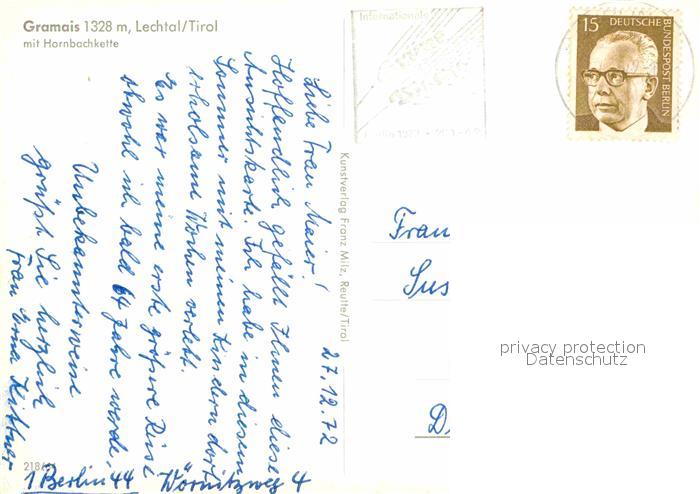 Gramais 1328 m, Lechtal/Tirol
mit Hornbachkette
27.12.72
Liebe Frau Maier!
Hoffendlich gefällt Ihnen diese
Ansichtskarte. Ich habe in diesem
Sommer mit meinen Kindern dort
erholsame Wochen verlebt.
Es war meine erste größere Reise
obwohl ich bald 64 Jahre werde.
Unbekannterweise
grüßt Sie herzlich
Frau Erna Kittner
1 Berlin 44 Wörnitzweg 4
Kunstverlag Franz Milz, Reutte/Tirol
Internationale
Grüne
Woche
15 DEUTSCHE BUNDESPOST BERLIN
Frau
Sus
D
privacy protection
Datenschutz